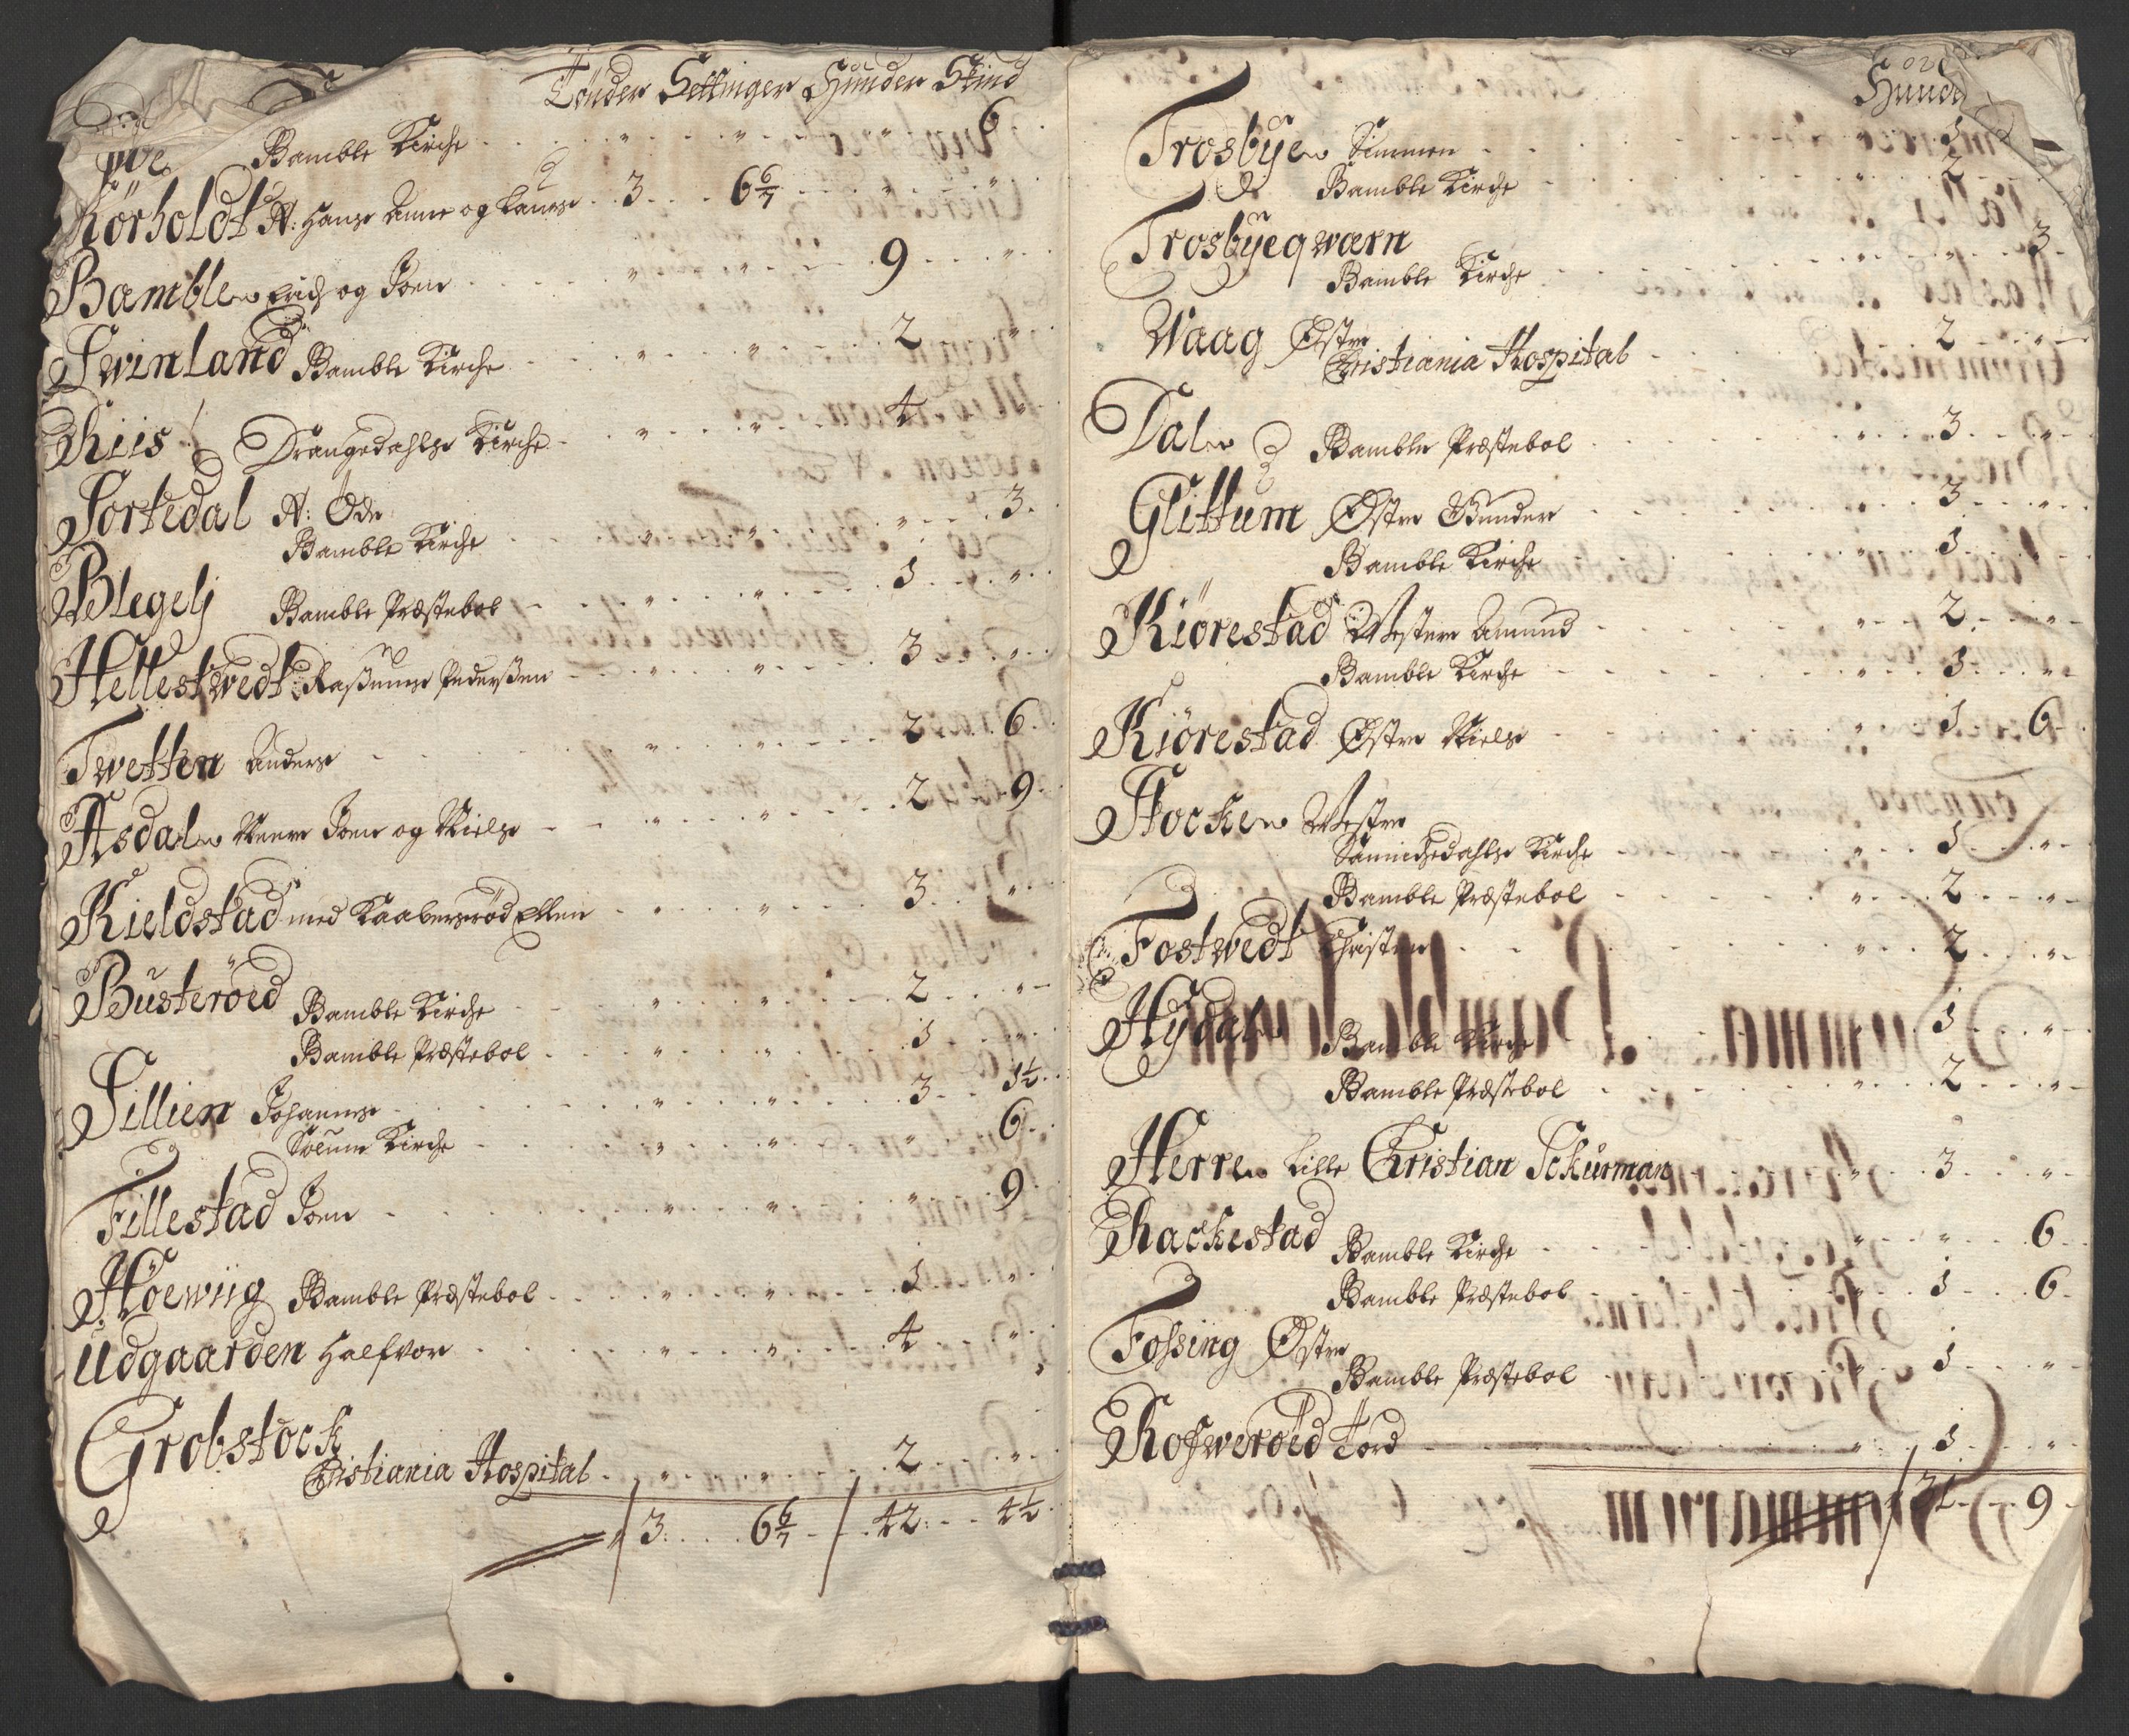 Tönder Settinger Hunder Skind
Bamble Kirche . . . " . . . " . . . 6
Körholdt A: Hans Anne og Laurs . . 3 . . . 6 6/7
Bamble Erich og Joen . . . " . . . 9 . . . "
Swinland Bamble Kirche . . . " . . . " . . . 2 . . . "
Riis Drangedahls Kirche . . . " . . . " . . . 4 . . . "
Sortedal A: Öde
Bamble Kirche . . . " . . . " . . . " . . . 3
Blegelj Bamble Præstebol . . . " . . . " . . . 1 . . . "
Hellestwedt Rasmus Pedersen . . . " . . . " . . . 3 . . . "
Twetten Anders . . . " . . . " . . . 2 . . . 6
Asdal Neere Joen og Niels . . . " . . . " . . . 2 . . . 9
Kieldstad med Kaabersröd Ellen . . . " . . . " . . . 3 . . . "
Busteröed Bamble Kirche . . . " . . . " . . . 2 . . . "
Bamble Præstebol . . . " . . . " . . . 1 . . . "
Sillien Johannes . . . " . . . " . . . 3 . . . 1½
Solum Kirche . . . " . . . " . . . " . . . 6
Fillestad Joen . . . " . . . " . . . " . . . 9
Höewiig Bamble Præstebol . . . " . . . " . . . 1 . . . "
Udgaarden Halfvor . . . " . . . " . . . 4 . . . "
Grobstock
Christiania Hospital . . . " . . . " . . . 2 . . . "
3 . . . 6 6/7 . . . 42 . . . 4½
Hunde
Trosbye Simmen . . . " . . . 1
Bamble Kirche . . . " . . . 2
Trosbyeqwærn
Bamble Kirche . . . " . . . " . . . 3
Waag Østre
Christiania Hospital . . . " . . . 2 . . . "
Dal Bamble Præstebol . . . " . . . 3 . . . "
Glittum Østre Gunder . . . " . . . 3 . . . "
Bamble Kirche . . . " . . . 1 . . . "
Kiörestad Westre Amund . . . " . . . 2 . . . "
Bamble Kirche . . . " . . . 1 . . . "
Kiörestad Østre Niels . . . " . . . 1 . . . 6
Stocke Westre
Sannichedahls Kirche . . . " . . . 1 . . . "
Bamble Præstebol . . . " . . . 2 . . . "
Fostwedt Christen . . . " . . . 2 . . . "
Hydal Bamble Kirche . . . " . . . 1 . . . "
Bamble Præstebol . . . " . . . 2 . . . "
Herre Lille Christian Schurman . . . " . . . 3 . . . "
Rackestad Bamble Kirche . . . " . . . " . . . 6
Bamble Præstebol . . . " . . . 1 . . . 6
Fossing Østre
Bamble Præstebol . . . " . . . 1 . . . "
Rosweröed Tord . . . " . . . 1 . . . "
31 . . . 9